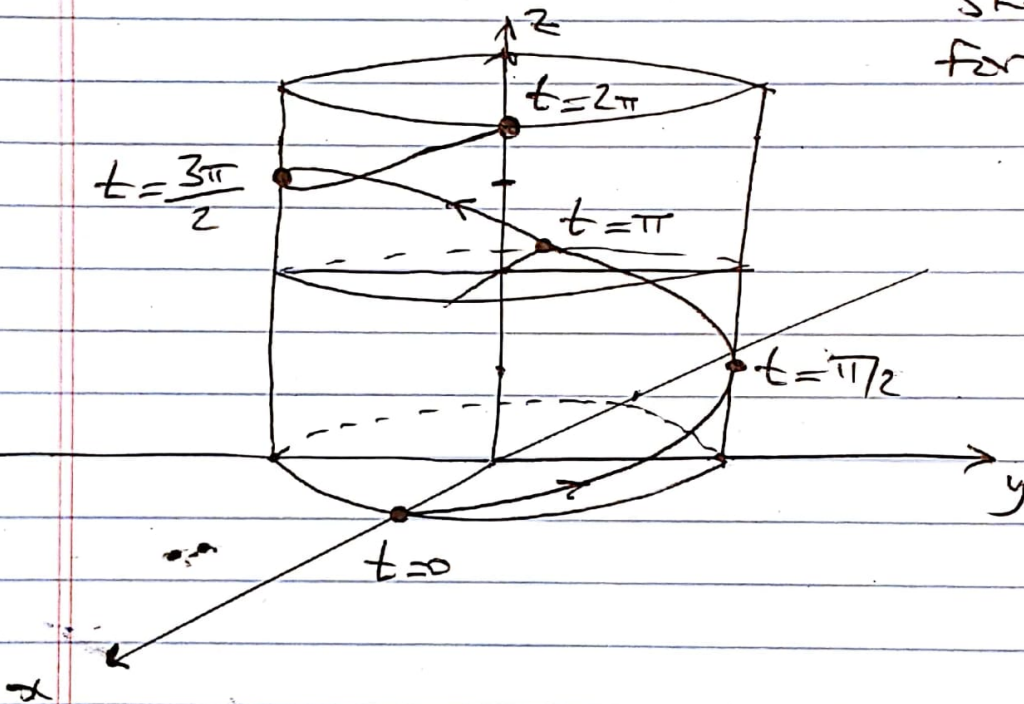 for
z
t=2π
t=3π/2
t=π
t=π/2
y
t=0
x